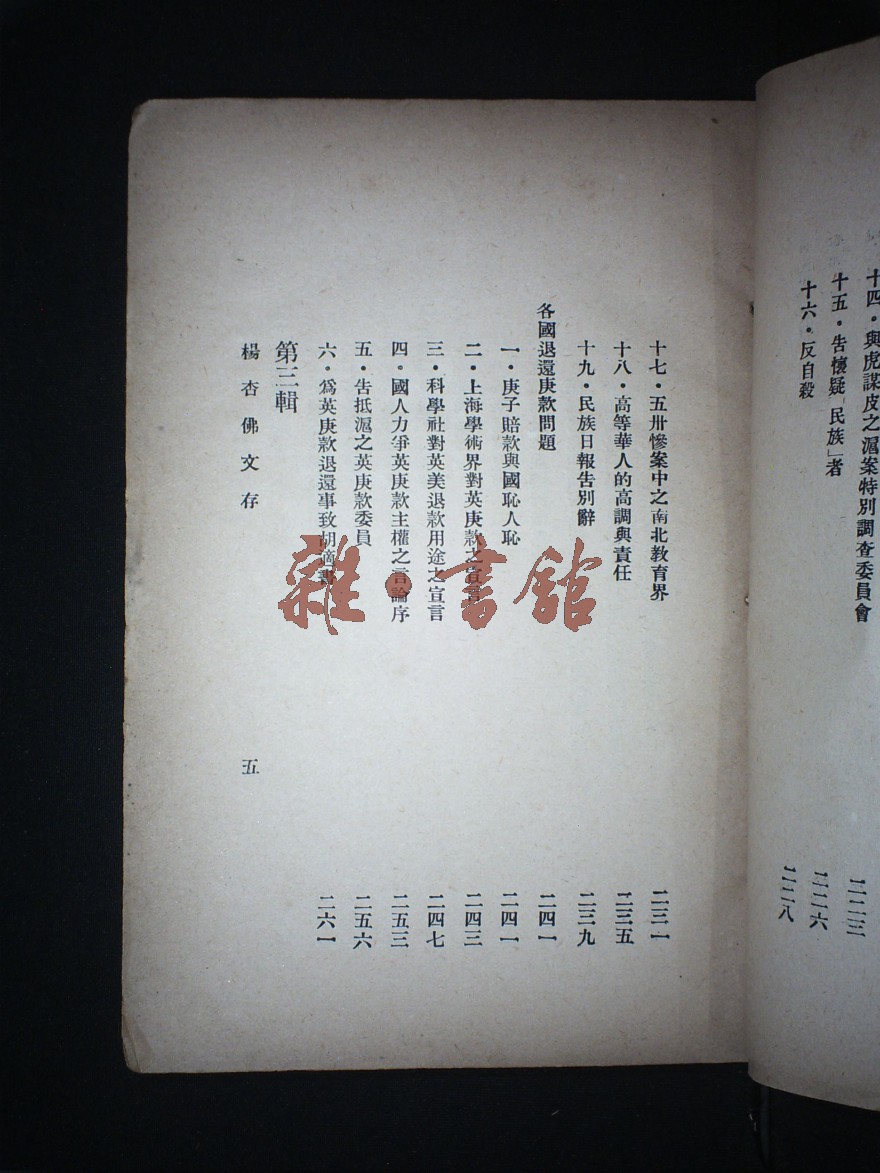 十四・與虎謀皮之滬案特別調查委員會 二二三
十五・告懷疑「民族」者 二二六
十六・反自殺 二二八
十七・五卅慘案中之南北教育界 二三一
十八・高等華人的高調與責任 二三五
十九・民族日報告別辭 二三九
各國退還庚款問題 二四一
一・庚子賠款與國恥人恥 二四一
二・上海學術界對英庚款之宣言 二四三
三・科學社對英美退款用途之宣言 二四七
四・國人力爭英庚款主權之言論序 二五三
五・告抵滬之英庚款委員 二五六
六・爲英庚款退還事致胡適書 二六一
第三輯
楊杏佛文存 五
雜・書館